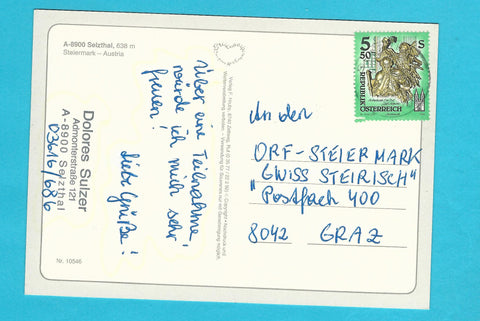 A-8900 Selzthal, 636 m
Steiermark – Austria
Über eine Teilnahme
würde ich mich sehr
freuen!
Liebe Grüße!
Dolores Sulzer
Admonterstraße 121
A-8900 Selzthal
03616/686
Nr. 10546
5
50
S
REPUBLIK
ÖSTERREICH
An den
ORF-STEIERMARK
"GWISS STEIRISCH"
Postfach 400
8042 GRAZ